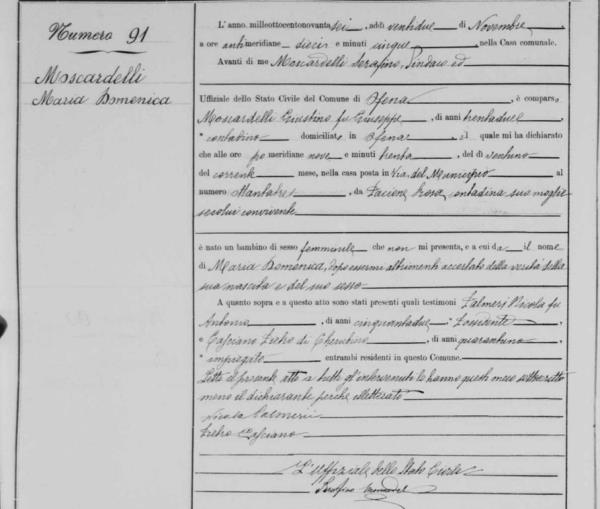 Numero 91
Moscardelli
Maria Domenica
L'anno milleottocentonovanta sei, addi ventidue di Novembre,
a ore antimeridiane dieci e minuti cinque, nella Casa comunale.
Avanti di me Moscardelli Serafino, Sindaco ed
Uffiziale dello Stato Civile del Comune di Ofena, è comparso
Moscardelli Giustino fu Giuseppe, di anni trentadue
contadino domiciliato in Ofena, il quale mi ha dichiarato
che alle ore pomeridiane nove e minuti trenta, del dì ventuno
del corrente mese, nella casa posta in Via del Municipio al
numero, da Rosa contadina sua moglie
secolui convivente
è nato un bambino di sesso femminile che non mi presenta, e a cui da il nome
di Maria Domenica, dopo essermi altrimenti accertato della verità della
sua nascita e del suo sesso
A quanto sopra e a questo atto sono stati presenti quali testimoni Palmeri Nicola fu
Antonio, di anni cinquantadue Possidente,
e Casciano Pietro di Cherubino, di anni quarantuno
impiegato entrambi residenti in questo Comune.
Letto il presente atto a tutti gl'intervenuti lo hanno questi meco sottoscritto
meno il dichiarante perchè illetterato
Nicola Palmerii
Pietro Casciano
L'Uffiziale dello Stato Civile
Serafino Moscardelli